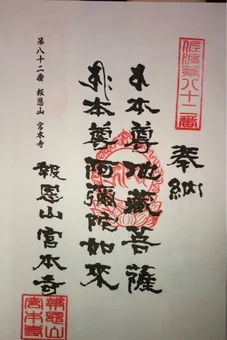 第八十二番
奉納
本尊地藏菩薩
本尊阿彌陀如來
報恩山宮本寺
第八十二番 報恩山 宮本寺
報恩山
宮本寺